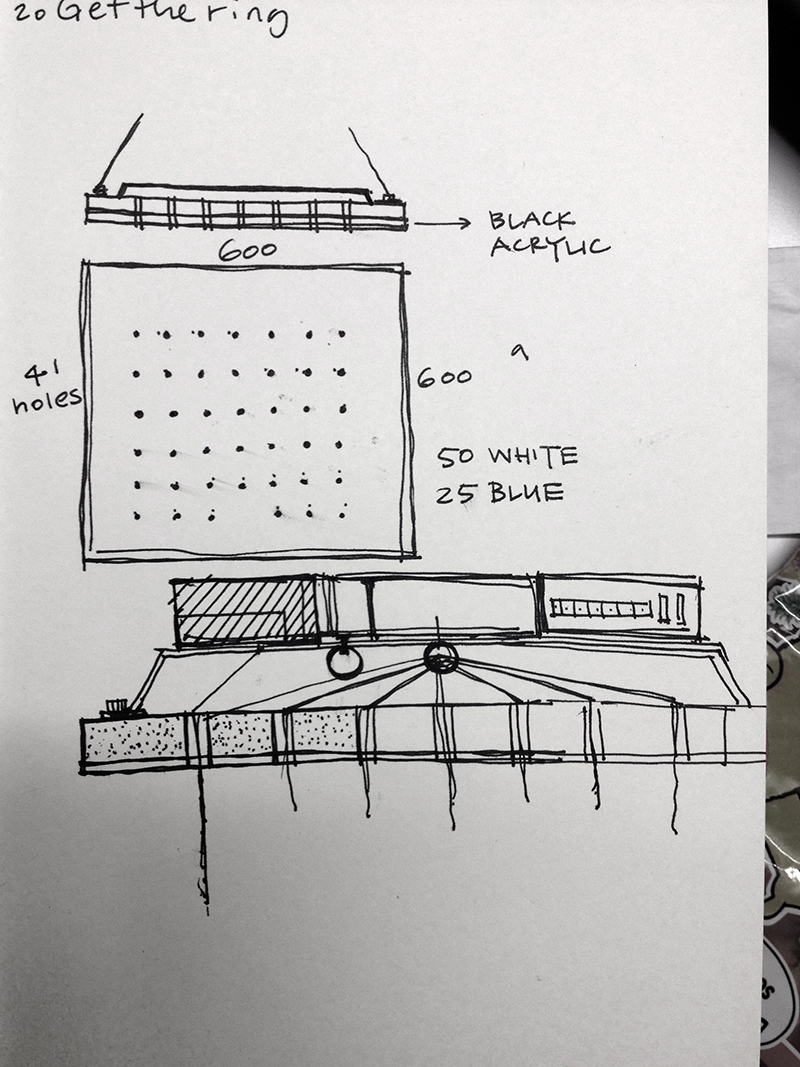 20 Get the ring
BLACK
ACRYLIC
600
41
holes
600
9
50 WHITE
25 BLUE